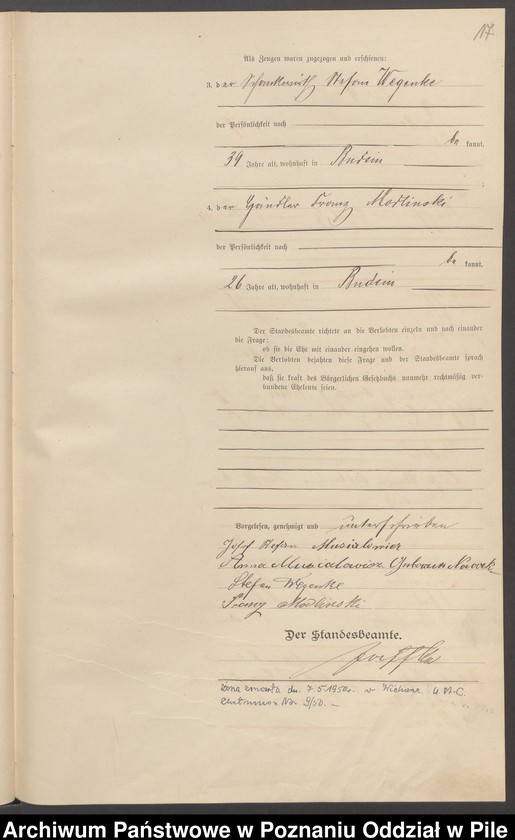 17
Als Zeugen waren zugezogen und erschienen:
3. der Schankwirth Stefan Wegenke
der Persönlichkeit nach
be kannt,
39 Jahre alt, wohnhaft in Budsin
4. der Händler Franz Modlinski
der Persönlichkeit nach
be kannt,
26 Jahre alt, wohnhaft in Budsin
Der Standesbeamte richtete an die Verlobten einzeln und nach einander
die Frage:
ob sie die Ehe mit einander eingehen wollen.
Die Verlobten bejahten diese Frage und der Standesbeamte sprach
hierauf aus,
daß sie kraft des Bürgerlichen Gesetzbuchs nunmehr rechtmäßig ver-
bundene Eheleute seien.
Vorgelesen, genehmigt und unterschrieben
Josef Stefan Musialowicz
Anna Musialowicz Nowak
Stefan Wegenke
Franz Modlinski
Der Standesbeamte.
Żona zmarła dn. 7.5.1950r. w U.S.C.
Nr. 9/50. –
Archiwum Państwowe w Poznaniu Oddział w Pile